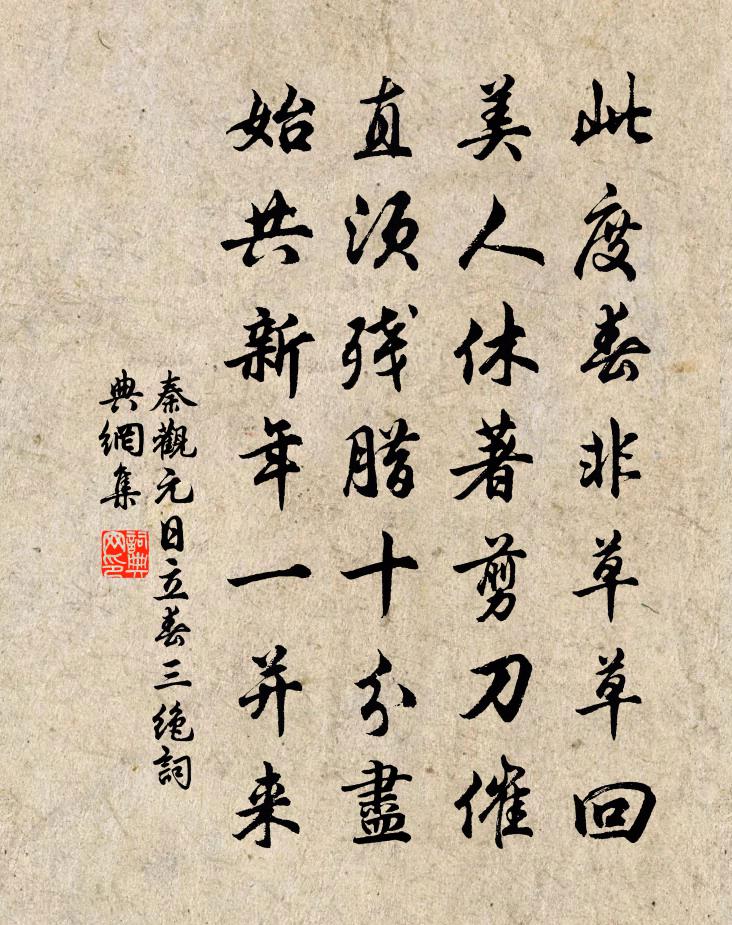 此度春非草草回
美人休著剪刀催
直須残腊十分盡
始共新年一并来
秦觀元日立春三绝詞
典網集
詞典
网印